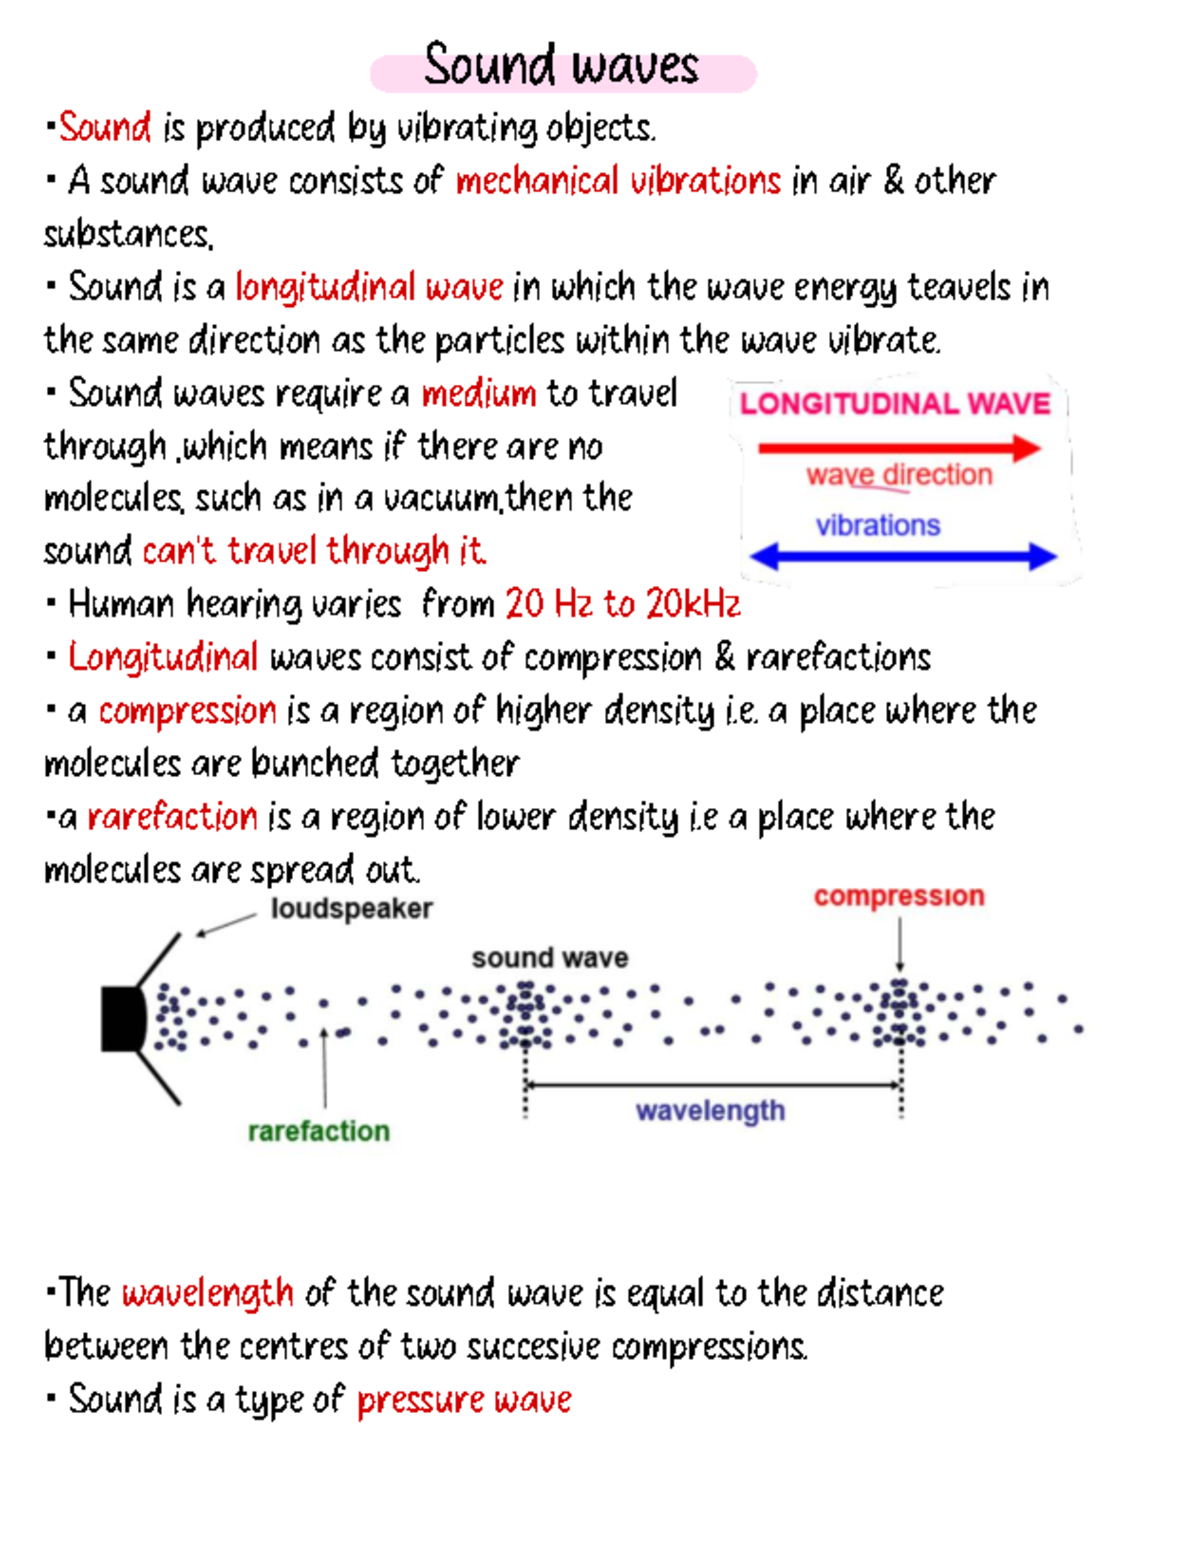 Sound waves
▪Sound is produced by vibrating objects.
▪ A sound wave consists of mechanical vibrations in air & other
substances.
▪ Sound is a longitudinal wave in which the wave energy teavels in
the same direction as the particles within the wave vibrate.
▪ Sound waves require a medium to travel
through ,which means if there are no
molecules, such as in a vacuum,then the
sound can't travel through it.
LONGITUDINAL WAVE
wave direction
vibrations
▪ Human hearing varies from 20 Hz to 20kHz
▪ Longitudinal waves consist of compression & rarefactions
▪ a compression is a region of higher density i.e. a place where the
molecules are bunched together
▪a rarefaction is a region of lower density i.e a place where the
molecules are spread out.
loudspeaker
compression
sound wave
wavelength
rarefaction
▪The wavelength of the sound wave is equal to the distance
between the centres of two succesive compressions.
▪ Sound is a type of pressure wave